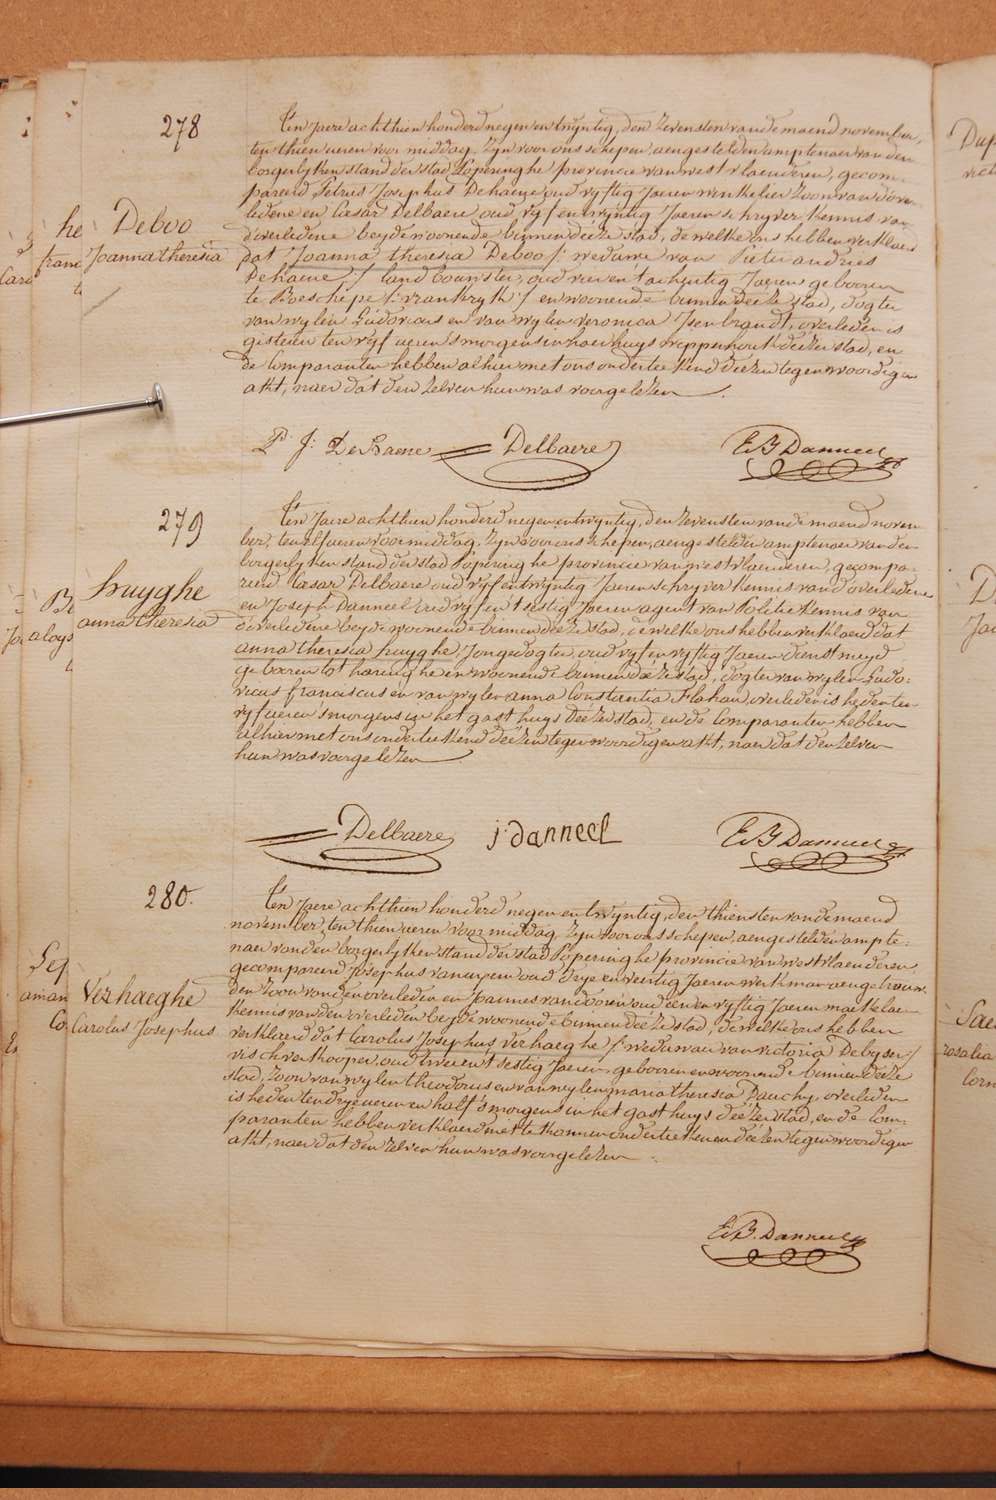 278
Deboo
Joanna theresia
Ten Jaere achthien honderd negen en twyntig, den zevensten van de maend november,
ten thien ueren voor middag, zyn voor ons schepen, aengestelden amptenaer van den
borgerlyken stand der stad Poperinghe provincie van west vlaenderen, gecom-
pareerd Petrus Josephus Dehaene oud vyftig Jaeren winkelier zoon van d'over-
ledene en Cæsar Delbaere oud vyf en twyntig Jaeren schryver kennis van
d'overledene beyde woonende binnen deéze stad, de welke ons hebben verklaerd
dat Joanna theresia Deboo /: weduwe van Pieter andries
Dehaene :/ landbouwster, oud vier en tachentig Jaeren geboren
te Boeschépe /: vrankryk :/ en woonende binnen deéze stad, dogter
van wylen Ludovicus en van wylen veronica Isenbrandt, overleden is
gisteren ten vyf ueren s'morgens in haer huys wyppenhoek deézer stad, en
de Comparanten hebben alhier met ons onderteekend deézen tegenwoordigen
akt, naer dat den zelven hun was voorgelezen.
P. J. DeHaene Delbaere E B Danneel
279
huyghe
anna theresia
Ten Jaere achthien honderd negen en twyntig, den zevensten van de maend novem-
ber, ten elf ueren voor middag, zyn voor ons schepen, aengestelden amptenaer van den
borgerlyken stand der stad Poperinghe provincie van west vlaenderen, gecompa-
reerd Cæsar Delbaere oud vyf en twyntig Jaeren schryver kennis van d'overledene
en Joseph Danneel oud vyf en tsestig Jaeren agent van Politie kennis van
d'overledene beyde woonende binnen deéze stad, de welke ons hebben verklaerd dat
anna theresia huyghe, Jonge dogter, oud vyf en vyftig Jaeren dienstmeyd
geboren tot haringhe en woonende binnen deéze stad, dogter van wylen Ludo-
vicus franciscus en van wylen anna Constantia Flahau, overleden is heden ten
vyf ueren s'morgens in het gasthuys deézer stad, en de Comparanten hebben
alhier met ons onderteekend deézen tegenwoordigen akt, naer dat den zelven
hun was voorgelezen
Delbaere j. danneel E B Danneel
280.
Verhaeghe
Carolus Josephus
Ten Jaere achthien honderd negen en twyntig, den thiensten van de maend
november, ten thien ueren voor middag, zyn voor ons schepen, aengestelden ampte-
naer van den borgerlyken stand der stad Poperinghe provincie van west vlaenderen,
gecompareerd Josephus van oud drye en veertig Jaeren werkman aengetrouw-
den zoon van den overleden en Joannes vandooren oud een en vyftig Jaeren maekelaer
kennis van den overleden beyde woonende binnen deéze stad, de welke ons hebben
verklaerd dat Carolus Josephus verhaeghe /: weduwaer van victoria Debyser :/
vischverkooper, oud twee en tsestig Jaeren geboren en woonende binnen deéze
stad, zoon van wylen theodorus en van wylen maria theresia Dauchy, overleden
is heden ten drye ueren en half s'morgens in het gasthuys deézer stad, en de Com-
paranten hebben verklaerd niet te konnen onderteekenen deézen tegenwoordigen
akt, naer dat den zelven hun was voorgelezen.
E. B. Danneel